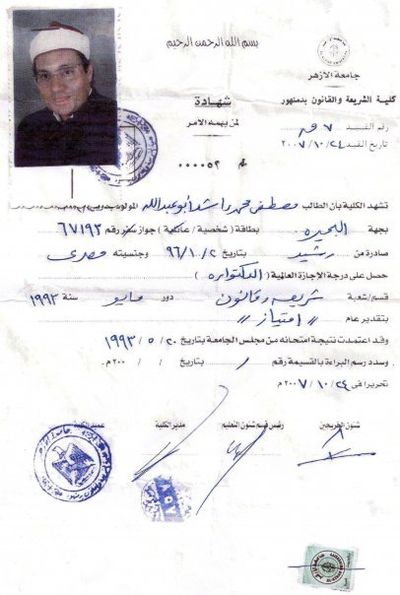 بسم الله الرحمن الرحيم
جامعة الأزهر
كلية الشريعة والقانون بدمنهور
شهادة
لمن يهمه الأمر
رقم القيد ٧
تاريخ القيد ٢٠٠٧/١٠/٢٤
٠٠٠٠٥٢
تشهد الكلية بأن الطالب مصطفى محمد راشد أبو عبدالله المولود
بجهة البحيرة بطاقة (شخصية / عائلية) جواز سفر رقم ٦٧١٩٢
صادرة من رشيد بتاريخ ٩٦/١٠/٢ وجنسيته مصرى
حصل على درجة الاجازة العالمية (الدكتواره)
قسم/شعبة شريعه وقانون دور مايو سنة ١٩٩٣
بتقدير عام "امتياز"
وقد اعتمدت نتيجة امتحانه من مجلس الجامعة بتاريخ ١٩٩٣/٥/٢٠
وسدد رسم البراءة بالقسيمة رقم / بتاريخ / / ٢٠٠م
تحريرا فى ٢٠٠٧/١٠/٢٤م
شئون الخريجين
رئيس قسم شئون التعليم
مدير الكلية
عميد الكلية